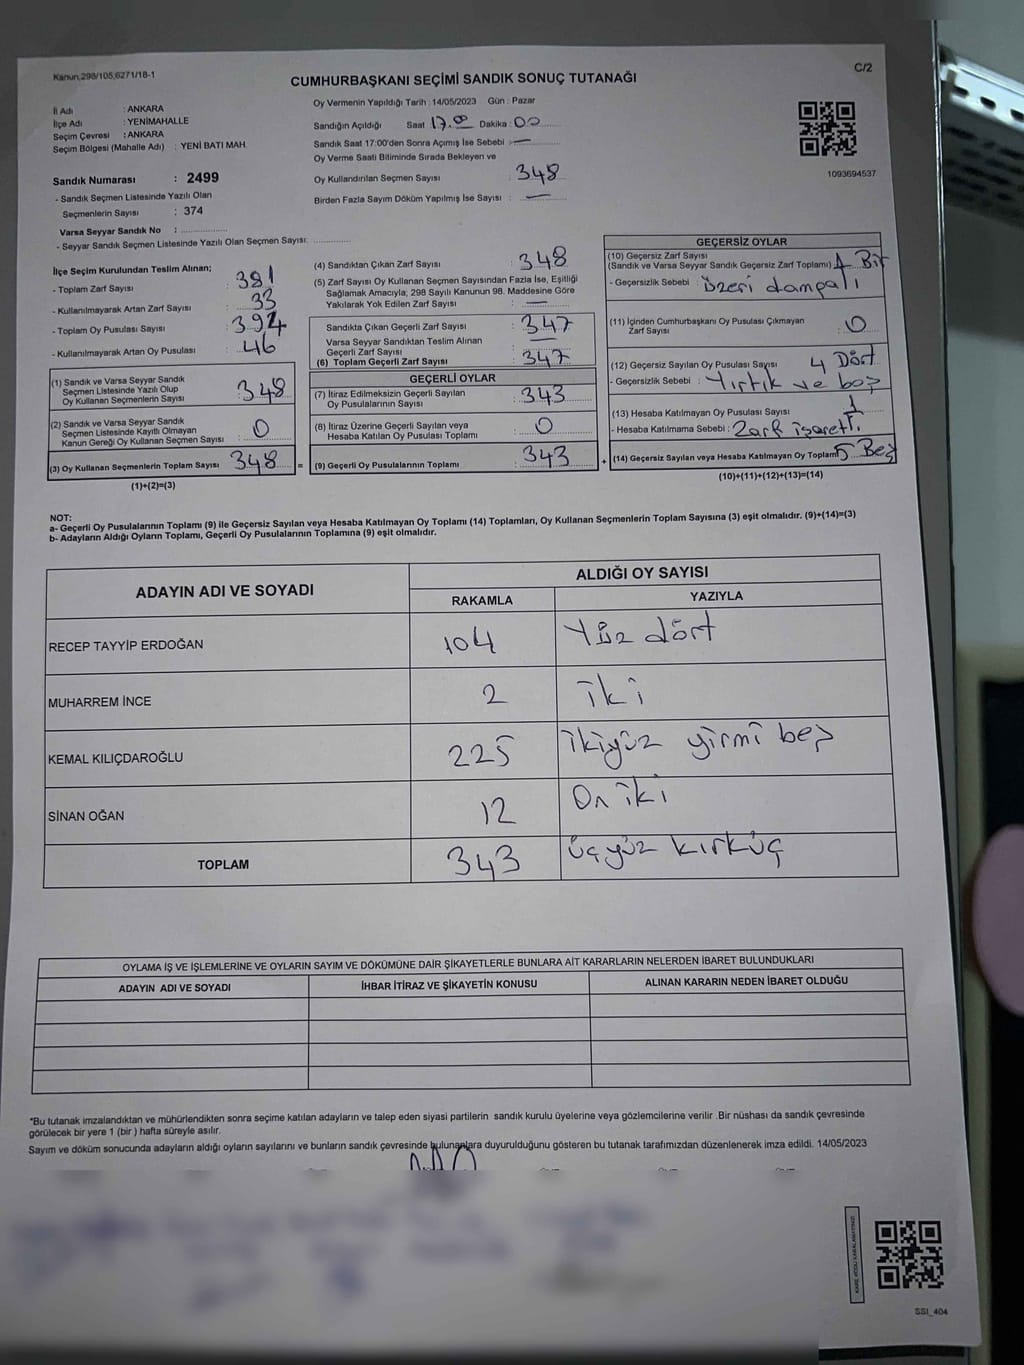 Kanun,298/105,6271/18-1
C/2
CUMHURBAŞKANI SEÇİMİ SANDIK SONUÇ TUTANAĞI
İl Adı : ANKARA
İlçe Adı : YENİMAHALLE
Seçim Çevresi : ANKARA
Seçim Bölgesi (Mahalle Adı) : YENİ BATI MAH.
Sandık Numarası : 2499
- Sandık Seçmen Listesinde Yazılı Olan
Seçmenlerin Sayısı : 374
Varsa Seyyar Sandık No :
- Seyyar Sandık Seçmen Listesinde Yazılı Olan Seçmen Sayısı:
Oy Vermenin Yapıldığı Tarih : 14/05/2023 Gün : Pazar
Sandığın Açıldığı Saat 17.00 Dakika : 00
Sandık Saat 17:00'den Sonra Açımış İse Sebebi : —
Oy Verme Saati Bitiminde Sırada Bekleyen ve
Oy Kullandırılan Seçmen Sayısı : 348
Birden Fazla Sayım Döküm Yapılmış İse Sayısı : —
1093694537
İlçe Seçim Kurulundan Teslim Alınan;
- Toplam Zarf Sayısı : 381
- Kullanılmayarak Artan Zarf Sayısı : 33
- Toplam Oy Pusulası Sayısı : 394
- Kullanılmayarak Artan Oy Pusulası : 46
(1) Sandık ve Varsa Seyyar Sandık
Seçmen Listesinde Yazılı Olup
Oy Kullanan Seçmenlerin Sayısı : 348
(2) Sandık ve Varsa Seyyar Sandık
Seçmen Listesinde Kayıtlı Olmayan
Kanun Gereği Oy Kullanan Seçmen Sayısı : 0
(3) Oy Kullanan Seçmenlerin Toplam Sayısı 348 =
(1)+(2)=(3)
(4) Sandıktan Çıkan Zarf Sayısı : 348
(5) Zarf Sayısı Oy Kullanan Seçmen Sayısından Fazla İse, Eşitliği
Sağlamak Amacıyla, 298 Sayılı Kanunun 98. Maddesine Göre
Yakılarak Yok Edilen Zarf Sayısı : —
Sandıkta Çıkan Geçerli Zarf Sayısı : 347
Varsa Seyyar Sandıktan Teslim Alınan
Geçerli Zarf Sayısı : —
(6) Toplam Geçerli Zarf Sayısı : 347
GEÇERLİ OYLAR
(7) İtiraz Edilmeksizin Geçerli Sayılan
Oy Pusulalarının Sayısı : 343
(8) İtiraz Üzerine Geçerli Sayılan veya
Hesaba Katılan Oy Pusulası Toplamı : 0
(9) Geçerli Oy Pusulalarının Toplamı : 343 +
GEÇERSİZ OYLAR
(10) Geçersiz Zarf Sayısı
(Sandık ve Varsa Seyyar Sandık Geçersiz Zarf Toplamı) 1 Bir
- Geçersizlik Sebebi : Üzeri dampalı
(11) İçinden Cumhurbaşkanı Oy Pusulası Çıkmayan
Zarf Sayısı : 0
(12) Geçersiz Sayılan Oy Pusulası Sayısı : 4 Dört
- Geçersizlik Sebebi : Yırtık ve boş
(13) Hesaba Katılmayan Oy Pusulası Sayısı :
- Hesaba Katılmama Sebebi : Zarf işaretli
(14) Geçersiz Sayılan veya Hesaba Katılmayan Oy Toplamı 5 Beş
(10)+(11)+(12)+(13)=(14)
NOT:
a- Geçerli Oy Pusulalarının Toplamı (9) ile Geçersiz Sayılan veya Hesaba Katılmayan Oy Toplamı (14) Toplamları, Oy Kullanan Seçmenlerin Toplam Sayısına (3) eşit olmalıdır. (9)+(14)=(3)
b- Adayların Aldığı Oyların Toplamı, Geçerli Oy Pusulalarının Toplamına (9) eşit olmalıdır.
ADAYIN ADI VE SOYADI
ALDIĞI OY SAYISI
RAKAMLA YAZIYLA
RECEP TAYYİP ERDOĞAN 104 Yüz dört
MUHARREM İNCE 2 iki
KEMAL KILIÇDAROĞLU 225 ikiyüz yirmi beş
SİNAN OĞAN 12 On iki
TOPLAM 343 üçyüz kırküç
OYLAMA İŞ VE İŞLEMLERİNE VE OYLARIN SAYIM VE DÖKÜMÜNE DAİR ŞİKAYETLERLE BUNLARA AİT KARARLARIN NELERDEN İBARET BULUNDUKLARI
ADAYIN ADI VE SOYADI İHBAR İTİRAZ VE ŞİKAYETİN KONUSU ALINAN KARARIN NEDEN İBARET OLDUĞU
*Bu tutanak imzalandıktan ve mühürlendikten sonra seçime katılan adayların ve talep eden siyasi partilerin sandık kurulu üyelerine veya gözlemcilerine verilir .Bir nüshası da sandık çevresinde
görülecek bir yere 1 (bir ) hafta süreyle asılır.
Sayım ve döküm sonucunda adayların aldığı oyların sayılarını ve bunların sandık çevresinde bulunanlara duyurulduğunu gösteren bu tutanak tarafımızdan düzenlenerek imza edildi. 14/05/2023
SSI_404